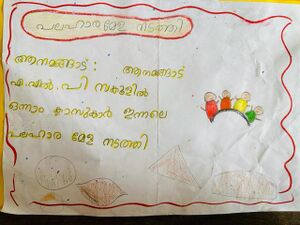 പലഹാര മേള നടത്തി
ആനമങ്ങാട് : ആനമങ്ങാട്
എ.എൽ.പി സ്കൂളിൽ
ഒന്നാം ക്ലാസുകാർ ഇന്നലെ
പലഹാര മേള നടത്തി